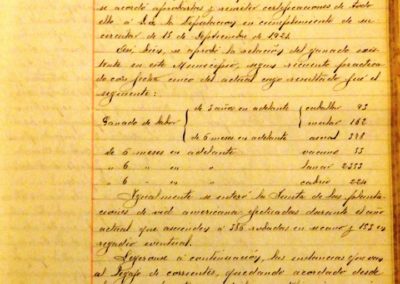 se acordó aprobarlas y remitir certificaciones de todo
ello á la Diputacion en cumplimiento de su
circular de 15 de Septiembre de 1921.
Asi bien, se aprobó la relación del ganado exis
tente en este Municipio, segun recuento practica
do con fecha cinco del actual cuyo resultado fué el
siguiente:
Ganado de labor de 3 años en adelante caballar 93
mular 162
de 6 meses en adelante asnal 248
de 6 meses en adelante vacuno 53
" 6 " en " lanar 2353
" 6 " en " cabrio 224
Igualmente se enteró la Junta de las planta
ciones de vid americana efectuadas durante el año
actual que ascienden á robadas en secano y 123 en
regadio eventual.
Leyeronse á continuación, las instancias que van
al legajo de corrientes, quedando acordado desde